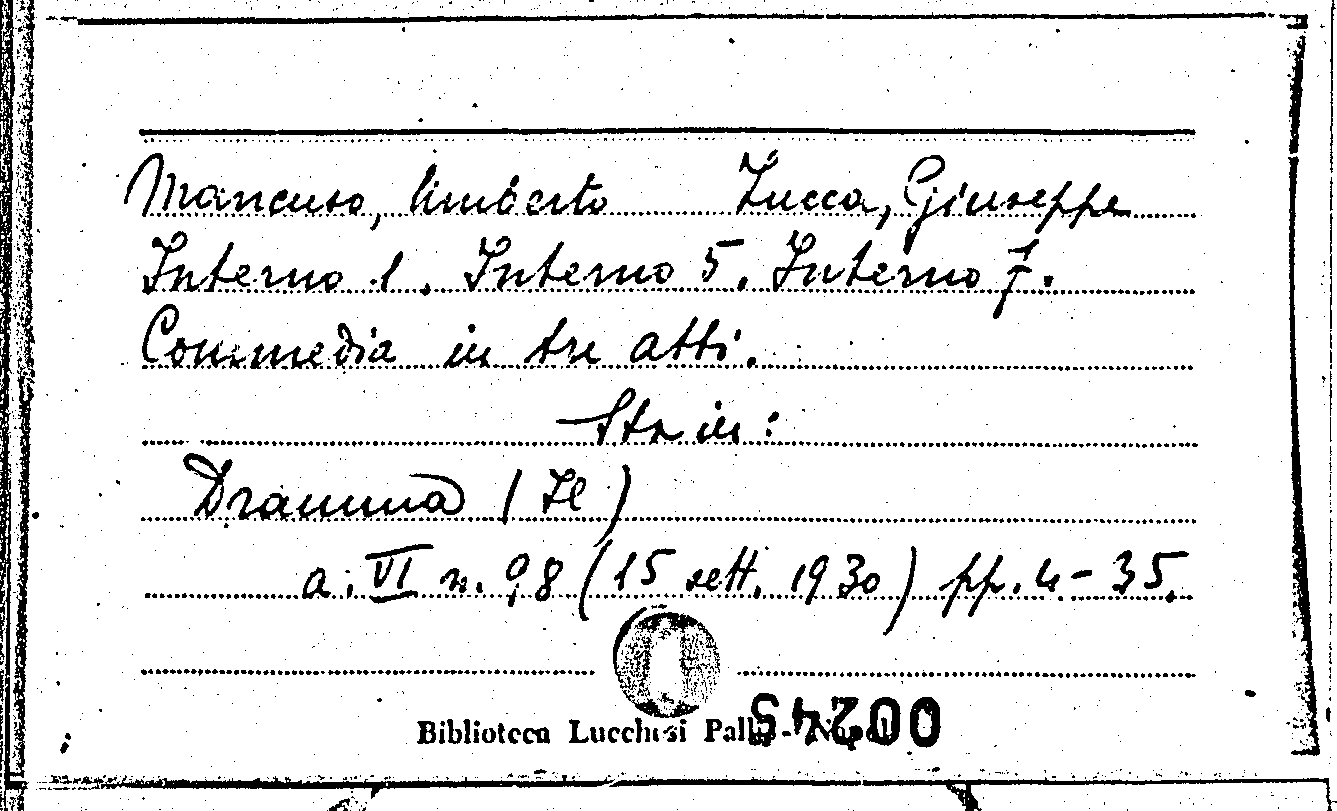 Mancuso, Umberto Zucca, Giuseppe
Interno 1. Interno 5. Interno 7.
Commedia in tre atti.
Sta in:
Dramma (Il)
a. VI n. 98 (15 sett. 1930) pp. 4-35.
Biblioteca Lucchesi Palli -
00245